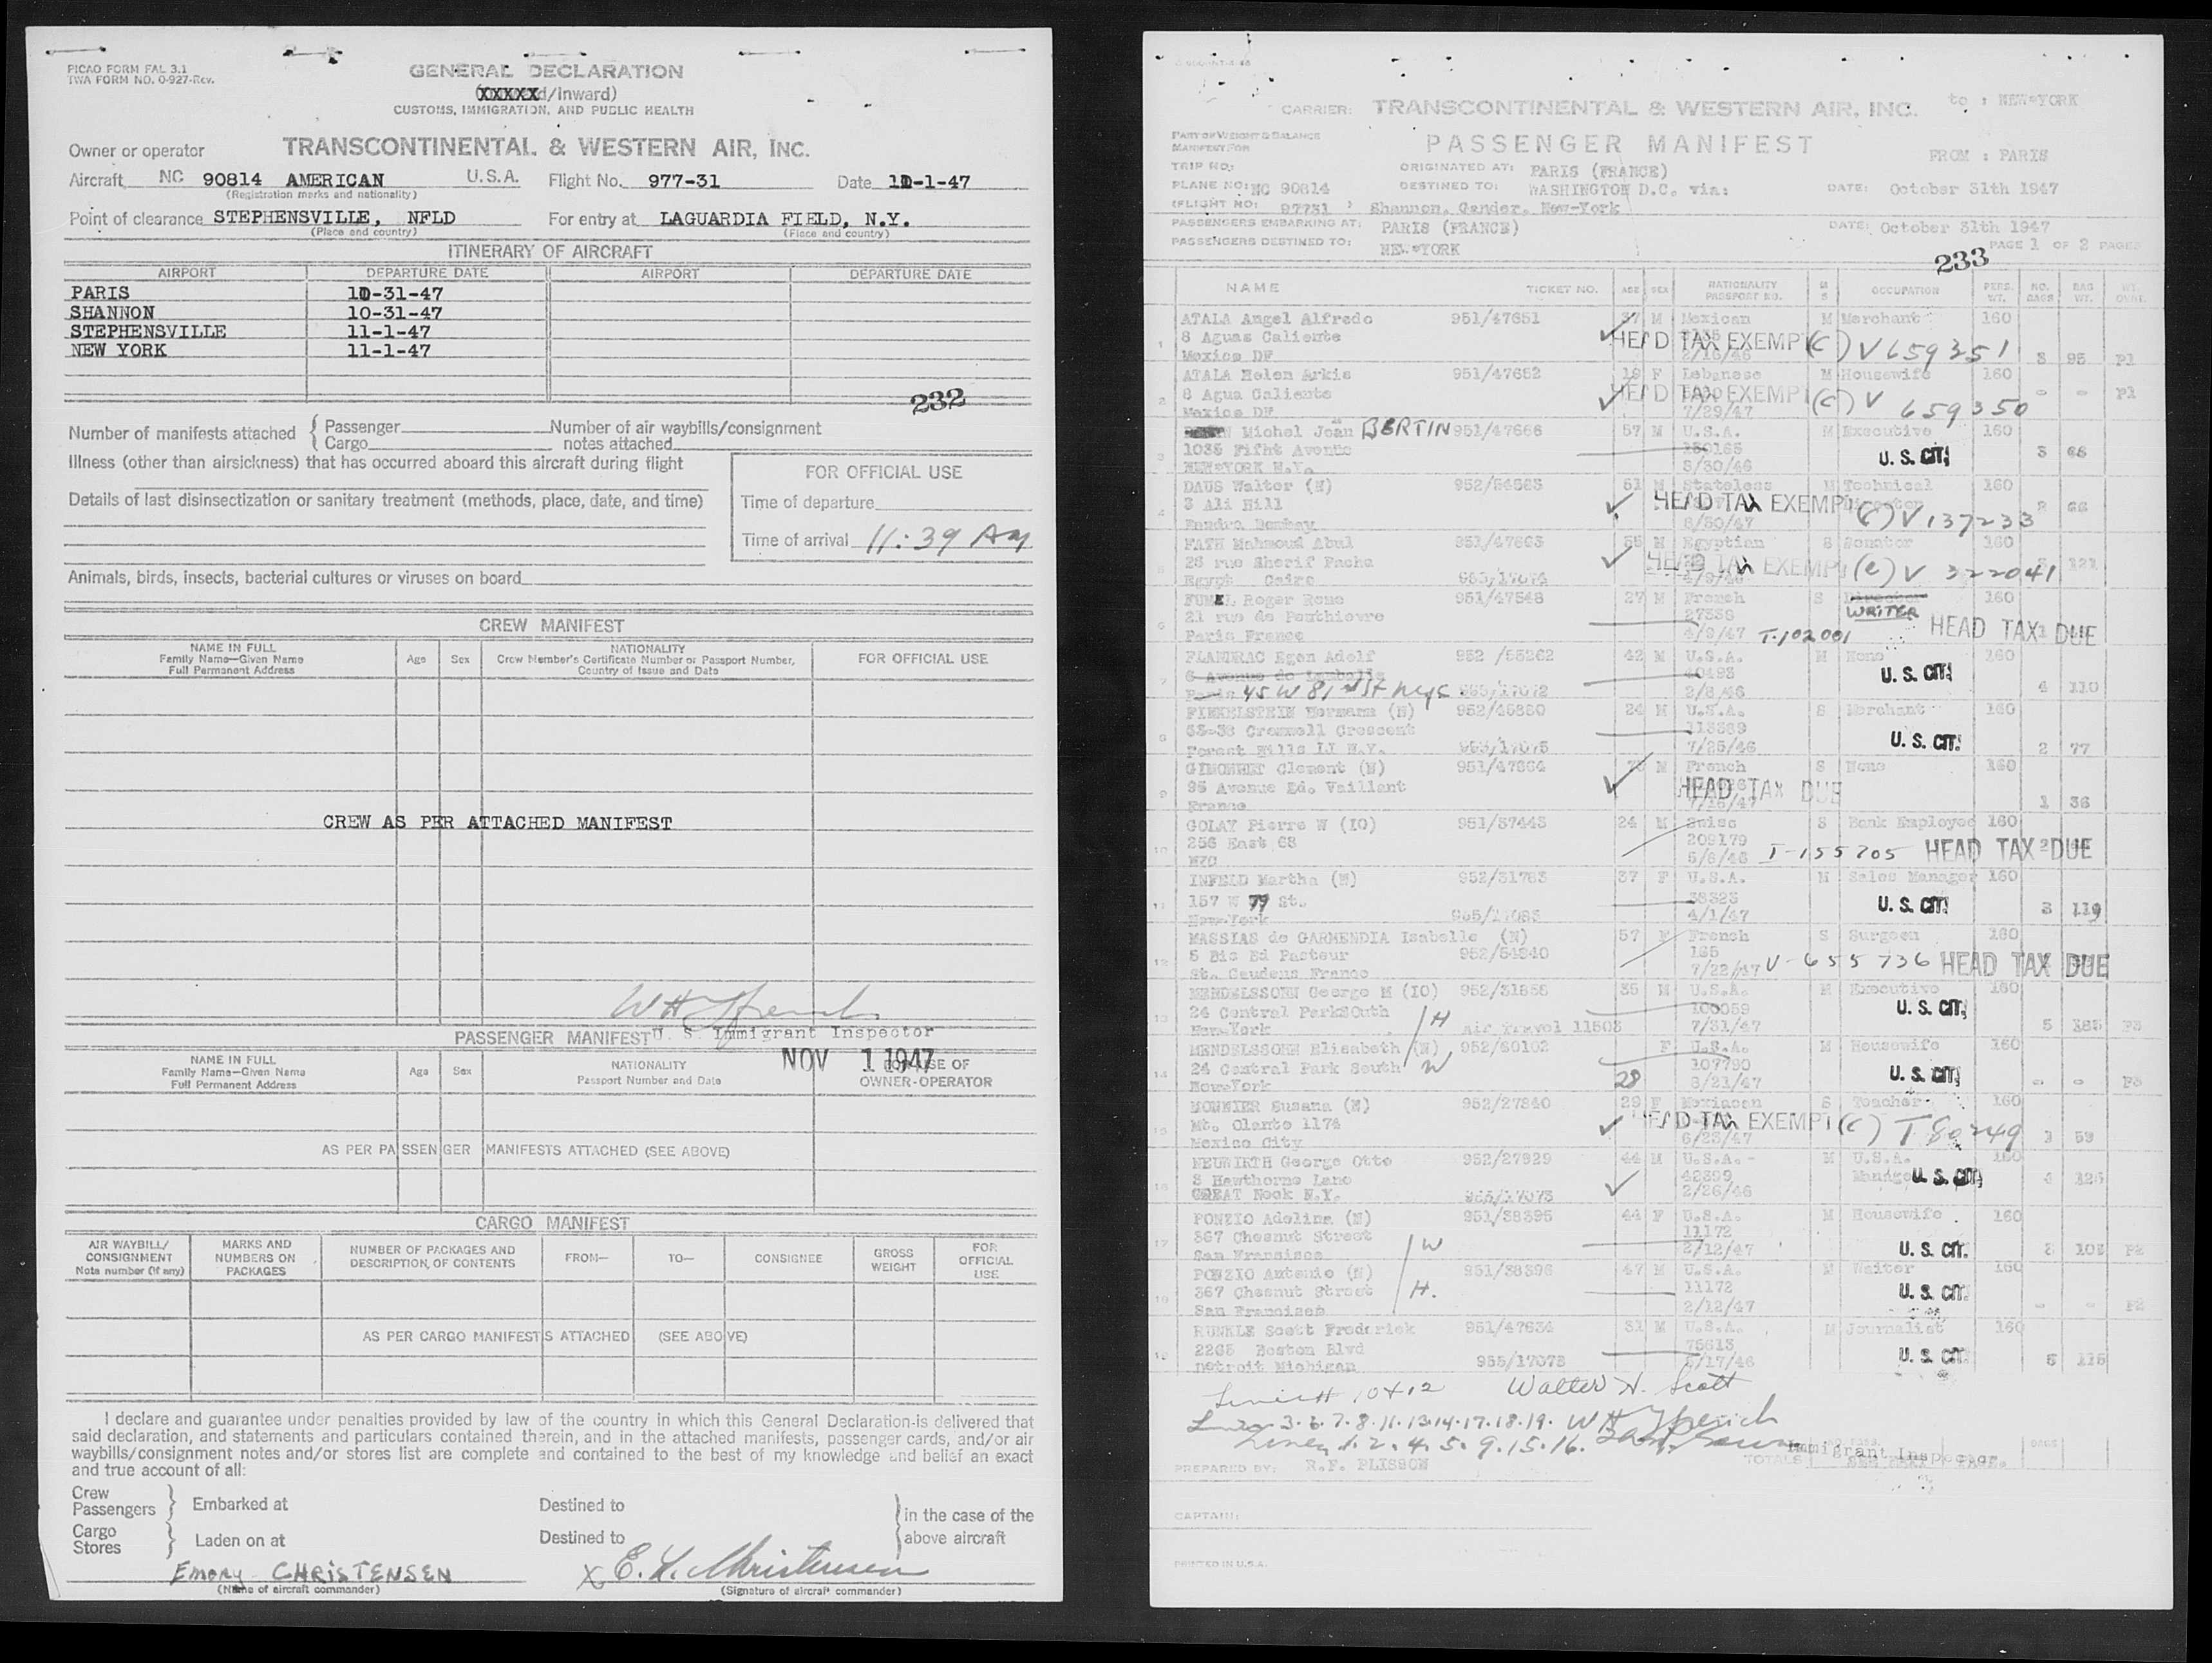 PICAO FORM FAL 3.1
TWA FORM NO. 0-927-Rev.
GENERAL DECLARATION
(XXXXXd/Inward)
CUSTOMS, IMMIGRATION, AND PUBLIC HEALTH
Owner or operator TRANSCONTINENTAL & WESTERN AIR, INC.
Aircraft NC 90814 AMERICAN U.S.A. Flight No. 977-31 Date 11-1-47
(Registration marks and nationality)
Point of clearance STEPHENSVILLE, NFLD For entry at LAGUARDIA FIELD, N.Y.
(Place and country) (Place and country)
ITINERARY OF AIRCRAFT
AIRPORT DEPARTURE DATE AIRPORT DEPARTURE DATE
PARIS 10-31-47
SHANNON 10-31-47
STEPHENSVILLE 11-1-47
NEW YORK 11-1-47
232
Number of manifests attached { Passenger Number of air waybills/consignment
Cargo notes attached
Illness (other than airsickness) that has occurred aboard this aircraft during flight
FOR OFFICIAL USE
Details of last disinsectization or sanitary treatment (methods, place, date, and time)
Time of departure
Time of arrival 11:39 AM
Animals, birds, insects, bacterial cultures or viruses on board
CREW MANIFEST
NAME IN FULL
Family Name—Given Name
Full Permanent Address
Age Sex
NATIONALITY
Crew Member's Certificate Number or Passport Number,
Country of Issue and Date
FOR OFFICIAL USE
CREW AS PER ATTACHED MANIFEST
PASSENGER MANIFEST U. S. Immigrant Inspector
NOV 1 1947
NAME IN FULL
Family Name—Given Name
Full Permanent Address
Age Sex
NATIONALITY
Passport Number and Date
FOR USE OF
OWNER-OPERATOR
AS PER PASSENGER MANIFESTS ATTACHED (SEE ABOVE)
CARGO MANIFEST
AIR WAYBILL/
CONSIGNMENT
Note number (if any)
MARKS AND
NUMBERS ON
PACKAGES
NUMBER OF PACKAGES AND
DESCRIPTION OF CONTENTS
FROM— TO— CONSIGNEE
GROSS
WEIGHT
FOR
OFFICIAL
USE
AS PER CARGO MANIFESTS ATTACHED (SEE ABOVE)
I declare and guarantee under penalties provided by law of the country in which this General Declaration is delivered that
said declaration, and statements and particulars contained therein, and in the attached manifests, passenger cards, and/or air
waybills/consignment notes and/or stores list are complete and contained to the best of my knowledge and belief an exact
and true account of all:
Crew
Passengers } Embarked at Destined to
Cargo
Stores } Laden on at Destined to
in the case of the
above aircraft
Emory CHRISTENSEN X E. H. Christensen
(Name of aircraft commander) (Signature of aircraft commander)
CARRIER: TRANSCONTINENTAL & WESTERN AIR, INC. to : NEW-YORK
PART OF WEIGHT & BALANCE
MANIFEST FOR
PASSENGER MANIFEST
FROM : PARIS
TRIP NO: ORIGINATED AT: PARIS (FRANCE)
PLANE NO: NC 90814 DESTINED TO: WASHINGTON D.C. via: DATE: October 31th 1947
(FLIGHT NO: 97731 Shannon, Gander, New-York
PASSENGERS EMBARKING AT: PARIS (FRANCE) DATE: October 31th 1947
PASSENGERS DESTINED TO: NEW-YORK PAGE 1 OF 2 PAGES
233
NAME TICKET NO. AGE SEX NATIONALITY PASSPORT NO. M S OCCUPATION PERS. WT. NO. BAGS BAG WT.
1 ATALA Angel Alfredo 951/47651 37 M Mexican M Merchant 160
8 Aguas Caliente HEAD TAX EXEMPT (C) V 659351
Mexico DF 3 95 P1
2 ATALA Helen Arkis 951/47652 19 F Lebanese M Housewife 160
8 Agua Caliente HEAD TAX EXEMPT (C) V 659350
Mexico DF 7/29/47 - - P1
3 Michel Jean BERTIN 951/47666 57 M U.S.A. M Executive 160
1035 Fifht Avenue U. S. CIT.
NEW-YORK N.Y. 8/30/46
4 DAUS Walter (N) 51 M Stateless M Technical 160
3 Ali Hill HEAD TAX EXEMPT (C) V 137233
Bandra Bombay
5 FATH Mahmoud Abul 55 M Egyptian S Senator 160
28 rue Sherif Pacha HEAD TAX EXEMPT (C) V 322041 121
Egypt Caire
6 Roger Rene 951/47548 27 M French S Director 160
21 rue de Ponthievre 27338 WRITER
Paris France 4/9/47 T-102001 HEAD TAX DUE
7 FLANDRAC Egon Adolf 952 /55262 42 M U.S.A. M None 160
6 Avenue de Lamballe U. S. CIT.
45 W 81st St nyc 2/8/46 4 110
8 Hermann (N) 952/45880 24 M U.S.A. S Merchant 160
Cromwell Crescent 113389 U. S. CIT.
Forest Hills LI N.Y. 7/25/46 2 77
9 Clement (N) 951/47864 M French S None 160
95 Avenue Ed. Vaillant HEAD TAX DUE
France 1 36
10 GOLAY Pierre W (IO) 951/37443 24 M Swiss S Bank Employee 160
256 East 68 209179
NYC T-155705 HEAD TAX DUE
11 INFELD Martha (N) 952/31783 37 F U.S.A. M Sales Manager 160
157 W 79 St. 38323 U. S. CIT.
New-York 4/1/47 3 119
12 MASSIAS de GARMENDIA Isabelle (N) 57 F French S Surgeon 160
5 Bis Bd Pasteur 952/54840 165
St. Gaudens France 7/22/47 V-655736 HEAD TAX DUE
13 MENDELSSOHN George M (IO) 952/31856 35 M U.S.A. M Executive 160
24 Central ParkSOuth H 100059 U. S. CIT.
New-York Air Travel 11503 7/31/47 5
14 MENDELSSOHN Elisabeth (N) 952/80102 28 F U.S.A. M Housewife 160
24 Central Park South W 107790 U. S. CIT.
New-York 8/21/47 - -
15 MOUNIER Susana (N) 952/27840 29 F S Teacher 160
Mt. Olanto 1174 HEAD TAX EXEMPT (C) T 80249
Mexico City 6/23/47
16 NEUWIRTH George Otto 952/27929 44 M U.S.A. M U.S.A. 160
8 Hawthorne Lane 42399 U. S. CIT.
GREAT Neck N.Y. 2/26/46
17 PONZIO Adelina (N) 951/38395 44 F U.S.A. M Housewife 160
367 Chesnut Street W 11172
San Francisco 2/12/47 U. S. CIT. P2
18 PONZIO Antonio (N) 951/38396 47 M U.S.A. M Waiter 160
367 Chesnut Street H. 11172 U. S. CIT.
San Francisco 2/12/47 - - P2
19 RUNKLE Scott Frederick 951/47634 31 M U.S.A. M Journalist 160
2265 Boston Blvd 75613 U. S. CIT.
Detroit Michigan 955/17073 5
10 & 12 Walter H. Scott
Lines 3. 6. 7. 8. 11. 13. 14. 17. 18. 19.
Lines 1. 2. 4. 5. 9. 15. 16.
Immigrant Inspector
PREPARED BY: R.F. PLISSON TOTALS
CAPTAIN:
PRINTED IN U.S.A.